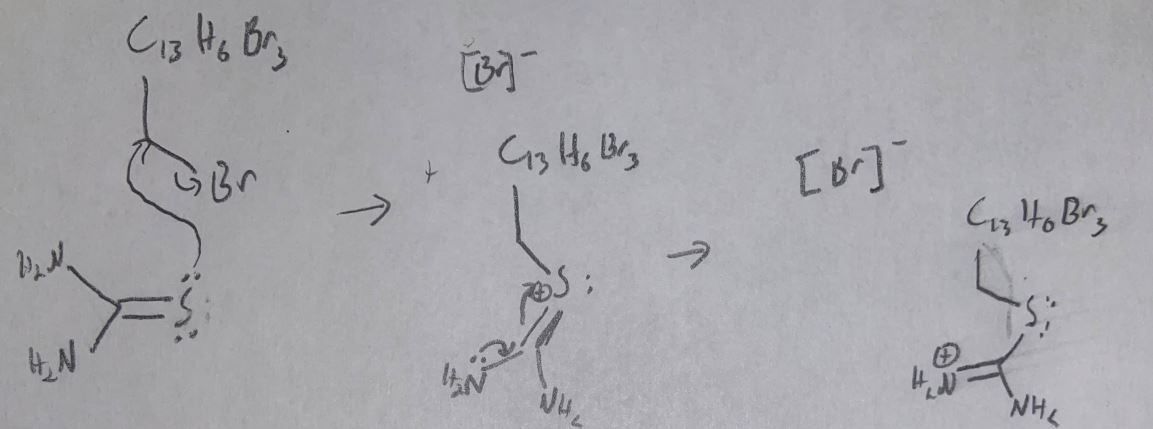 C₁₃H₆Br₃
Br
H₂N
S
H₂N
→
+
[Br]⁻
C₁₃H₆Br₃
⊕S:
H₂N
NH₂
→
[Br]⁻
C₁₃H₆Br₃
S:
⊕
H₂N
NH₂